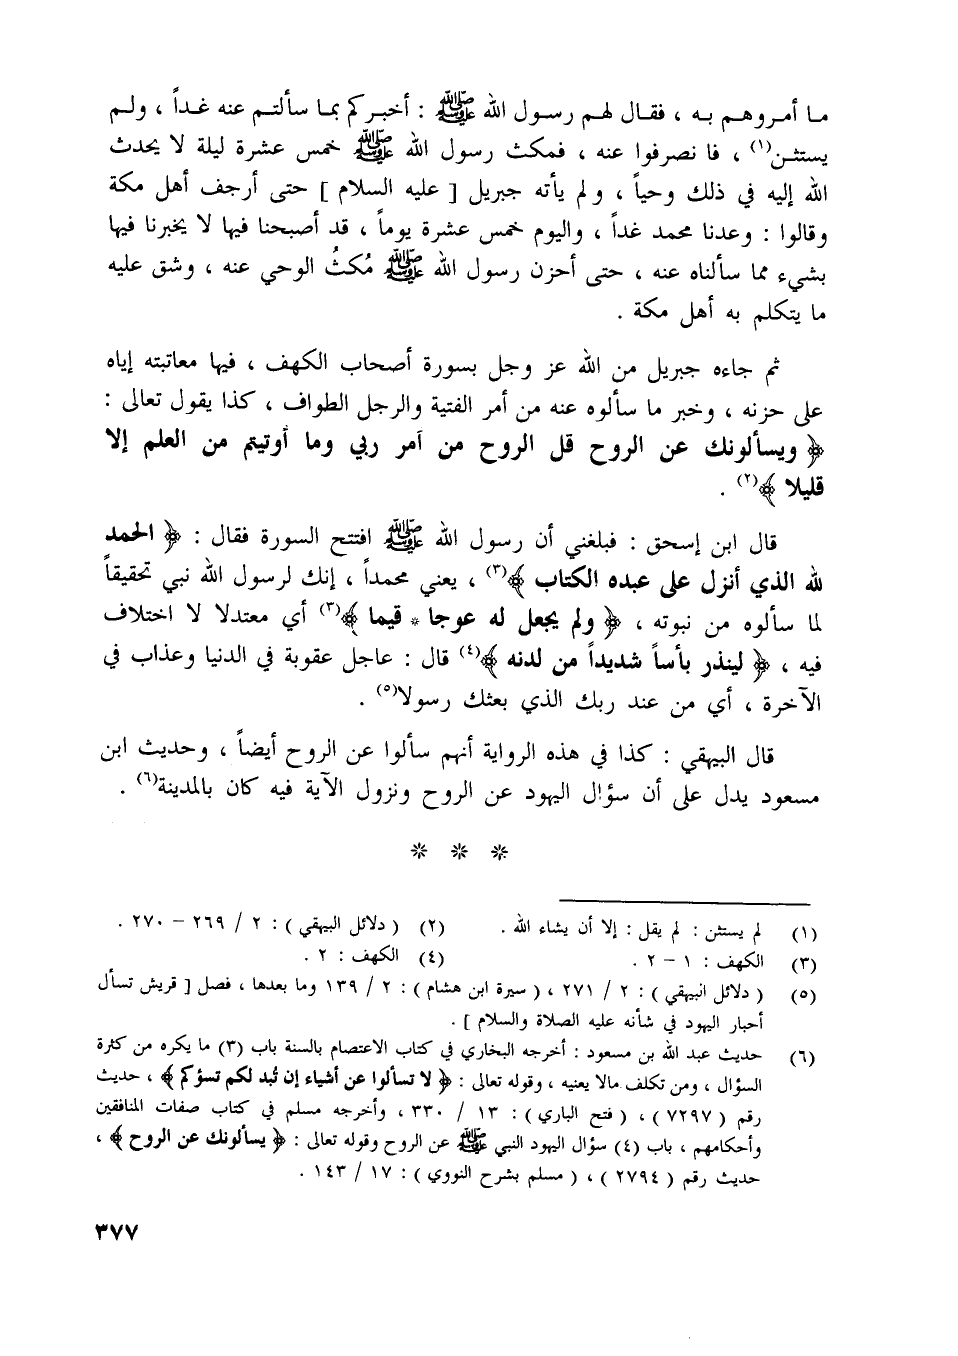 ما أمروهم به ، فقال لهم رسول الله ﷺ : أخبركم بما سألتم عنه غداً ، ولم
يستثن(١) ، فا نصرفوا عنه ، فمكث رسول الله ﷺ خمس عشرة ليلة لا يحدث
الله إليه في ذلك وحياً ، ولم يأته جبريل [ عليه السلام ] حتى أرجف أهل مكة
وقالوا : وعدنا محمد غداً ، واليوم خمس عشرة يوماً ، قد أصبحنا فيها لا يخبرنا فيها
بشيء مما سألناه عنه ، حتى أحزن رسول الله ﷺ مُكثُ الوحي عنه ، وشق عليه
ما يتكلم به أهل مكة .
ثم جاءه جبريل من الله عز وجل بسورة أصحاب الكهف ، فيها معاتبته إياه
على حزنه ، وخبر ما سألوه عنه من أمر الفتية والرجل الطواف ، كذا يقول تعالى :
﴿ ويسألونك عن الروح قل الروح من أمر ربي وما أوتيتم من العلم إلا
قليلا ﴾(٢) .
قال ابن إسحق : فبلغني أن رسول الله ﷺ افتتح السورة فقال : ﴿ الحمد
لله الذي أنزل على عبده الكتاب ﴾(٣) ، يعني محمداً ، إنك لرسول الله نبي تحقيقاً
لما سألوه من نبوته ، ﴿ ولم يجعل له عوجا * قيما ﴾(٣) أي معتدلا لا اختلاف
فيه ، ﴿ لينذر بأساً شديداً من لدنه ﴾(٤) قال : عاجل عقوبة في الدنيا وعذاب في
الآخرة ، أي من عند ربك الذي بعثك رسولا(٥) .
قال البيهقي : كذا في هذه الرواية أنهم سألوا عن الروح أيضاً ، وحديث ابن
مسعود يدل على أن سؤال اليهود عن الروح ونزول الآية فيه كان بالمدينة(٦) .
* * *
(١) لم يستثن : لم يقل : إلا أن يشاء الله . (٢) ( دلائل البيهقي ) : ٢ / ٢٦٩ – ٢٧٠ .
(٣) الكهف : ١ – ٢ . (٤) الكهف : ٢ .
(٥) ( دلائل البيهقي ) : ٢ / ٢٧١ ، ( سيرة ابن هشام ) : ٢ / ١٣٩ وما بعدها ، فصل [ قريش تسأل
أحبار اليهود في شأنه عليه الصلاة والسلام ] .
(٦) حديث عبد الله بن مسعود : أخرجه البخاري في كتاب الاعتصام بالسنة باب (٣) ما يكره من كثرة
السؤال ، ومن تكلف مالا يعنيه ، وقوله تعالى : ﴿ لا تسألوا عن أشياء إن تُبد لكم تسؤكم ﴾ ، حديث
رقم ( ٧٢٩٧ ) ، ( فتح الباري ) : ١٣ / ٣٣٠ ، وأخرجه مسلم في كتاب صفات المنافقين
وأحكامهم ، باب (٤) سؤال اليهود النبي ﷺ عن الروح وقوله تعالى : ﴿ يسألونك عن الروح ﴾ ،
حديث رقم ( ٢٧٩٤ ) ، ( مسلم بشرح النووي ) : ١٧ / ١٤٣ .
٣٧٧